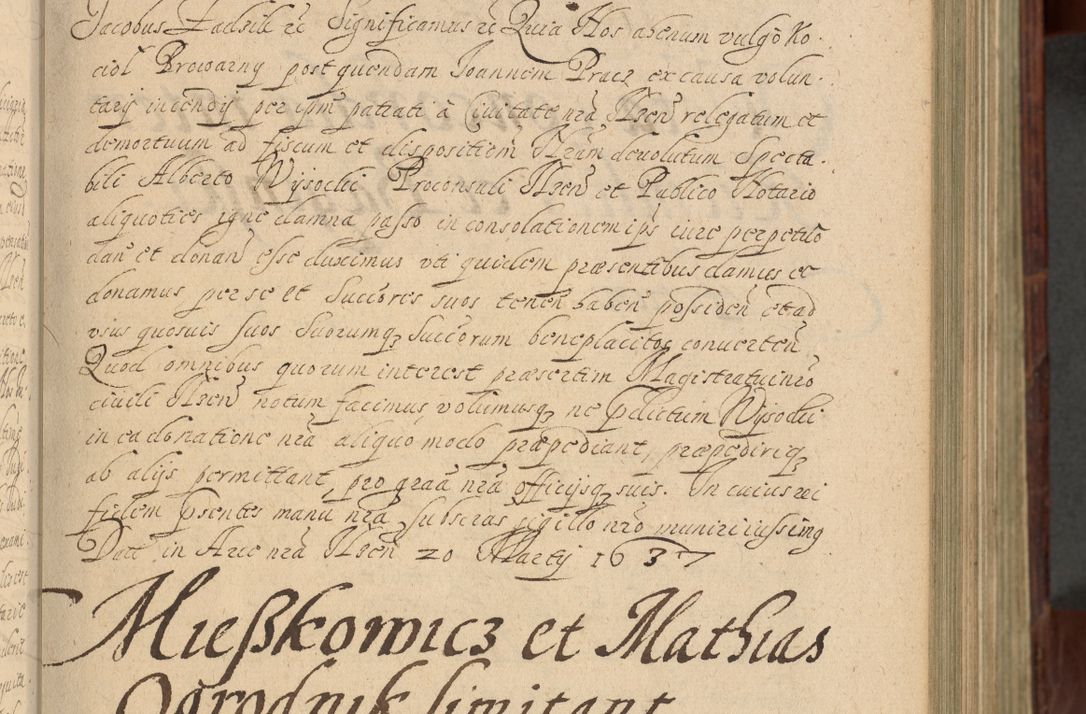 Jacobus Zadzik etc Significamus etc Quia Nos ahenum vulgo Ko
ciol Browarny post quendam Joannem Pracz ex causa volun
tarij incendij per ipm patrati à Ciuitate nrã Ilzen relegatum et
demortuum ad fiscum et dispositiem Nrãm deuolutum Specta
bili Alberto Wysocki Proconsuli Ilzen et Publico Notario
aliquoties igne damna passo in consolationem ips iure perpetuo
dan et donan esse duximus vti quidem præsentibus damus et
donamus per se et Succores suos tenen haben possiden et ad
vsus quosuis suos Suorumq Succorum beneplacitos conuerten
Quod omnibus quorum interest præsertim Magistratui nro
ciuili Ilzen notum facimus volumusq ne pdictum Wysocki
in ea donatione nrã aliquo modo præpediant, præpediriq
ab alijs permittant, pro graã nrã officijsq suis. In cuius rei
fidem psentes manu nrã subscras sigillo nro muniri iussimq
Datt in Arce nrã Ilzen 20 Martij 1637
Mießkowicz et Mathias
Ogrodnik limitant